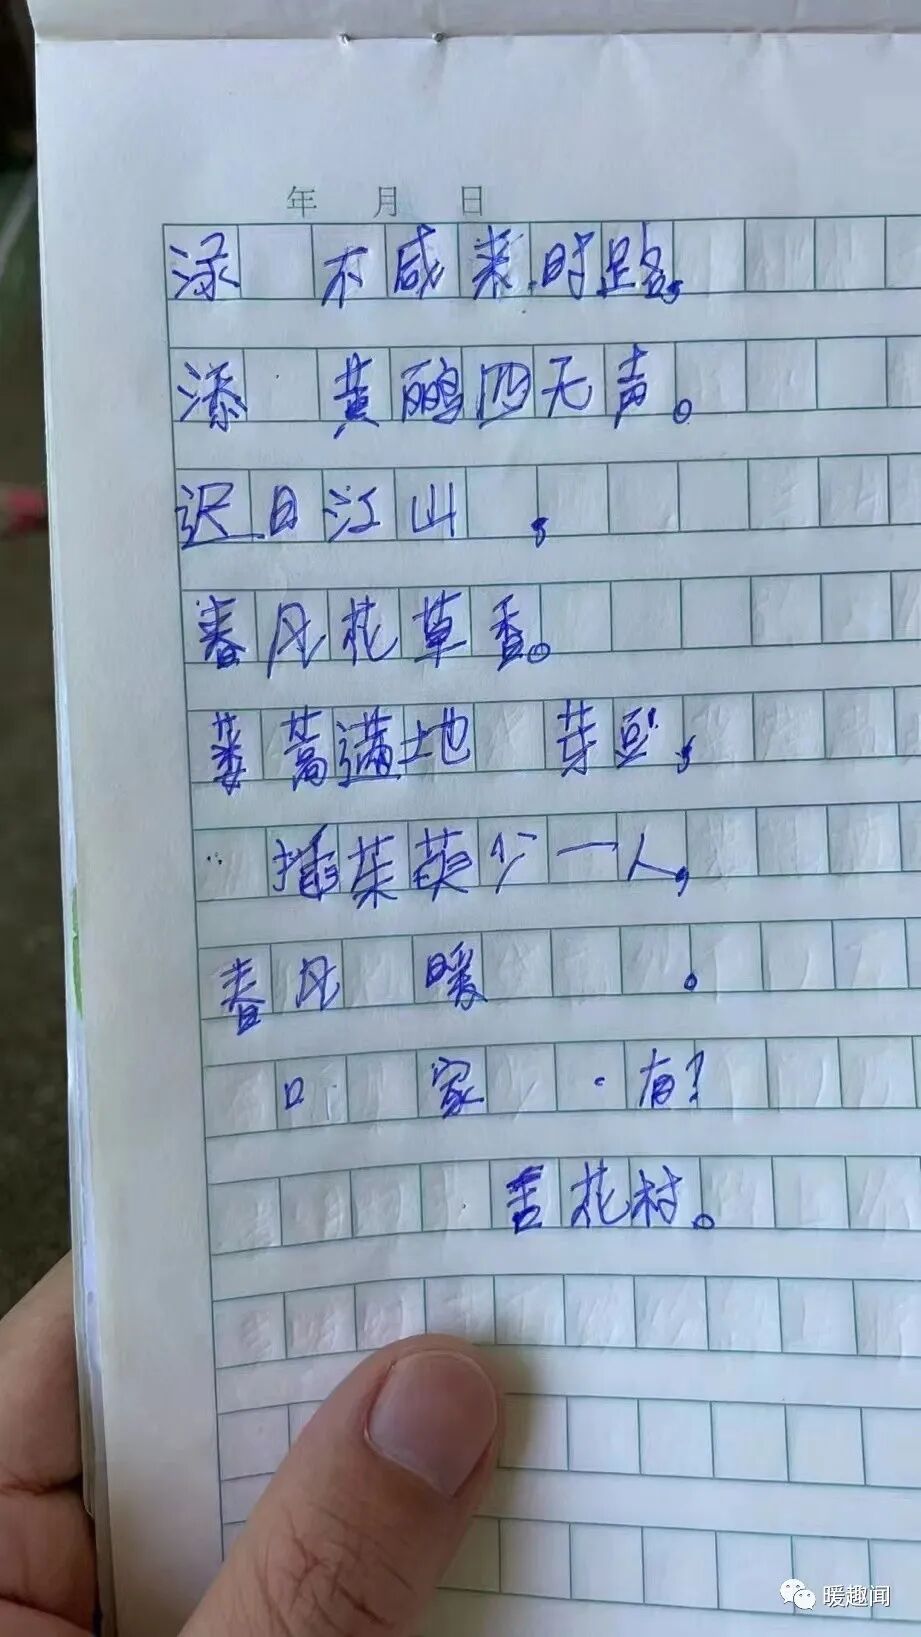 年 月 日
渌 不咸来时路,
添 黄鹂四无声。
迟日江山 ,
春风花草香。
蒌蒿满地 芽短,
插茱萸少一人,
春风 暖 。
口 家 有?
杏花村。
暖趣闻